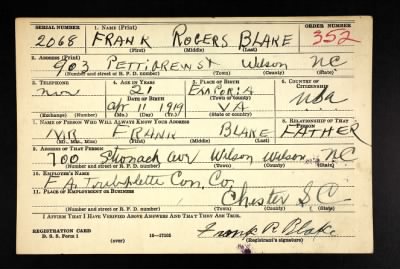 SERIAL NUMBER 1. NAME (Print) ORDER NUMBER
2068 FRANK ROGERS BLAKE 352
(First) (Middle) (Last)
2. ADDRESS (Print)
903 PETTIGREW ST Wilson NC
(Number and street or R. F. D. number) (Town) (County) (State)
3. TELEPHONE 4. AGE IN YEARS 5. PLACE OF BIRTH 6. COUNTRY OF CITIZENSHIP
21 EMPORIA
DATE OF BIRTH
Apr 11 1919 VA USA
(Exchange) (Number) (Mo.) (Day) (Yr.) (State or country)
7. NAME OF PERSON WHO WILL ALWAYS KNOW YOUR ADDRESS 8. RELATIONSHIP OF THAT PERSON
MR FRANK BLAKE FATHER
(Mr., Mrs., Miss) (First) (Middle) (Last)
9. ADDRESS OF THAT PERSON
700 ave Wilson Wilson NC
(Number and street or R. F. D. number) (Town) (County) (State)
10. EMPLOYER'S NAME
F. A. Triplette Con. Co.
11. PLACE OF EMPLOYMENT OR BUSINESS
Chester S.C.
(Number and street or R. F. D. number) (Town) (County) (State)
I AFFIRM THAT I HAVE VERIFIED ABOVE ANSWERS AND THAT THEY ARE TRUE.
REGISTRATION CARD
D. S. S. Form 1 (over) 16—17105
Frank R. Blake
(Registrant's signature)